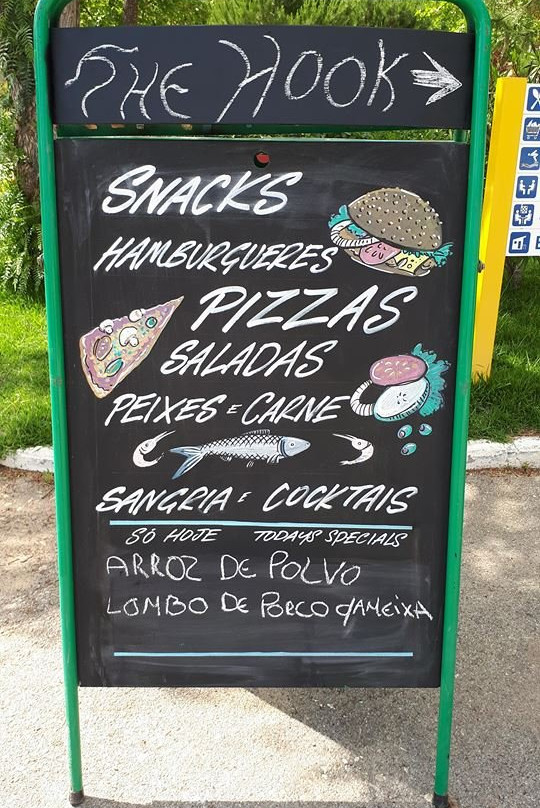 THE HOOK →
SNACKS
HAMBURGUERES
PIZZAS
SALADAS
PEIXES E CARNE
SANGRIA E COCKTAIS
SÓ HOJE TODAYS SPECIALS
ARROZ DE POLVO
LOMBO DE PORCO dAMEIXA